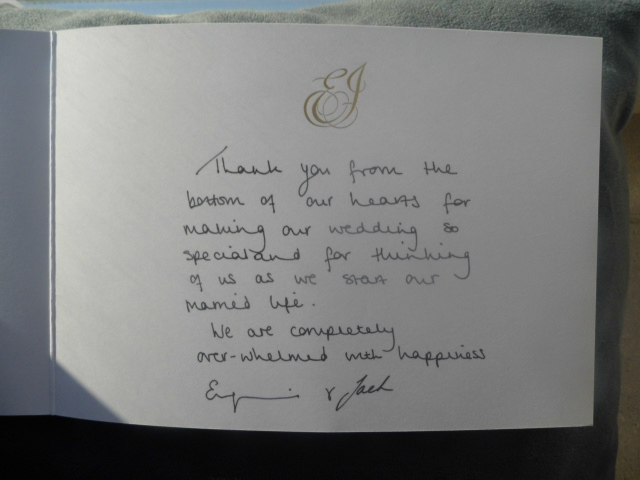 EJ
Thank you from the
bottom of our hearts for
making our wedding so
special and for thinking
of us as we start our
married life.
We are completely
over-whelmed with happiness
& Jack